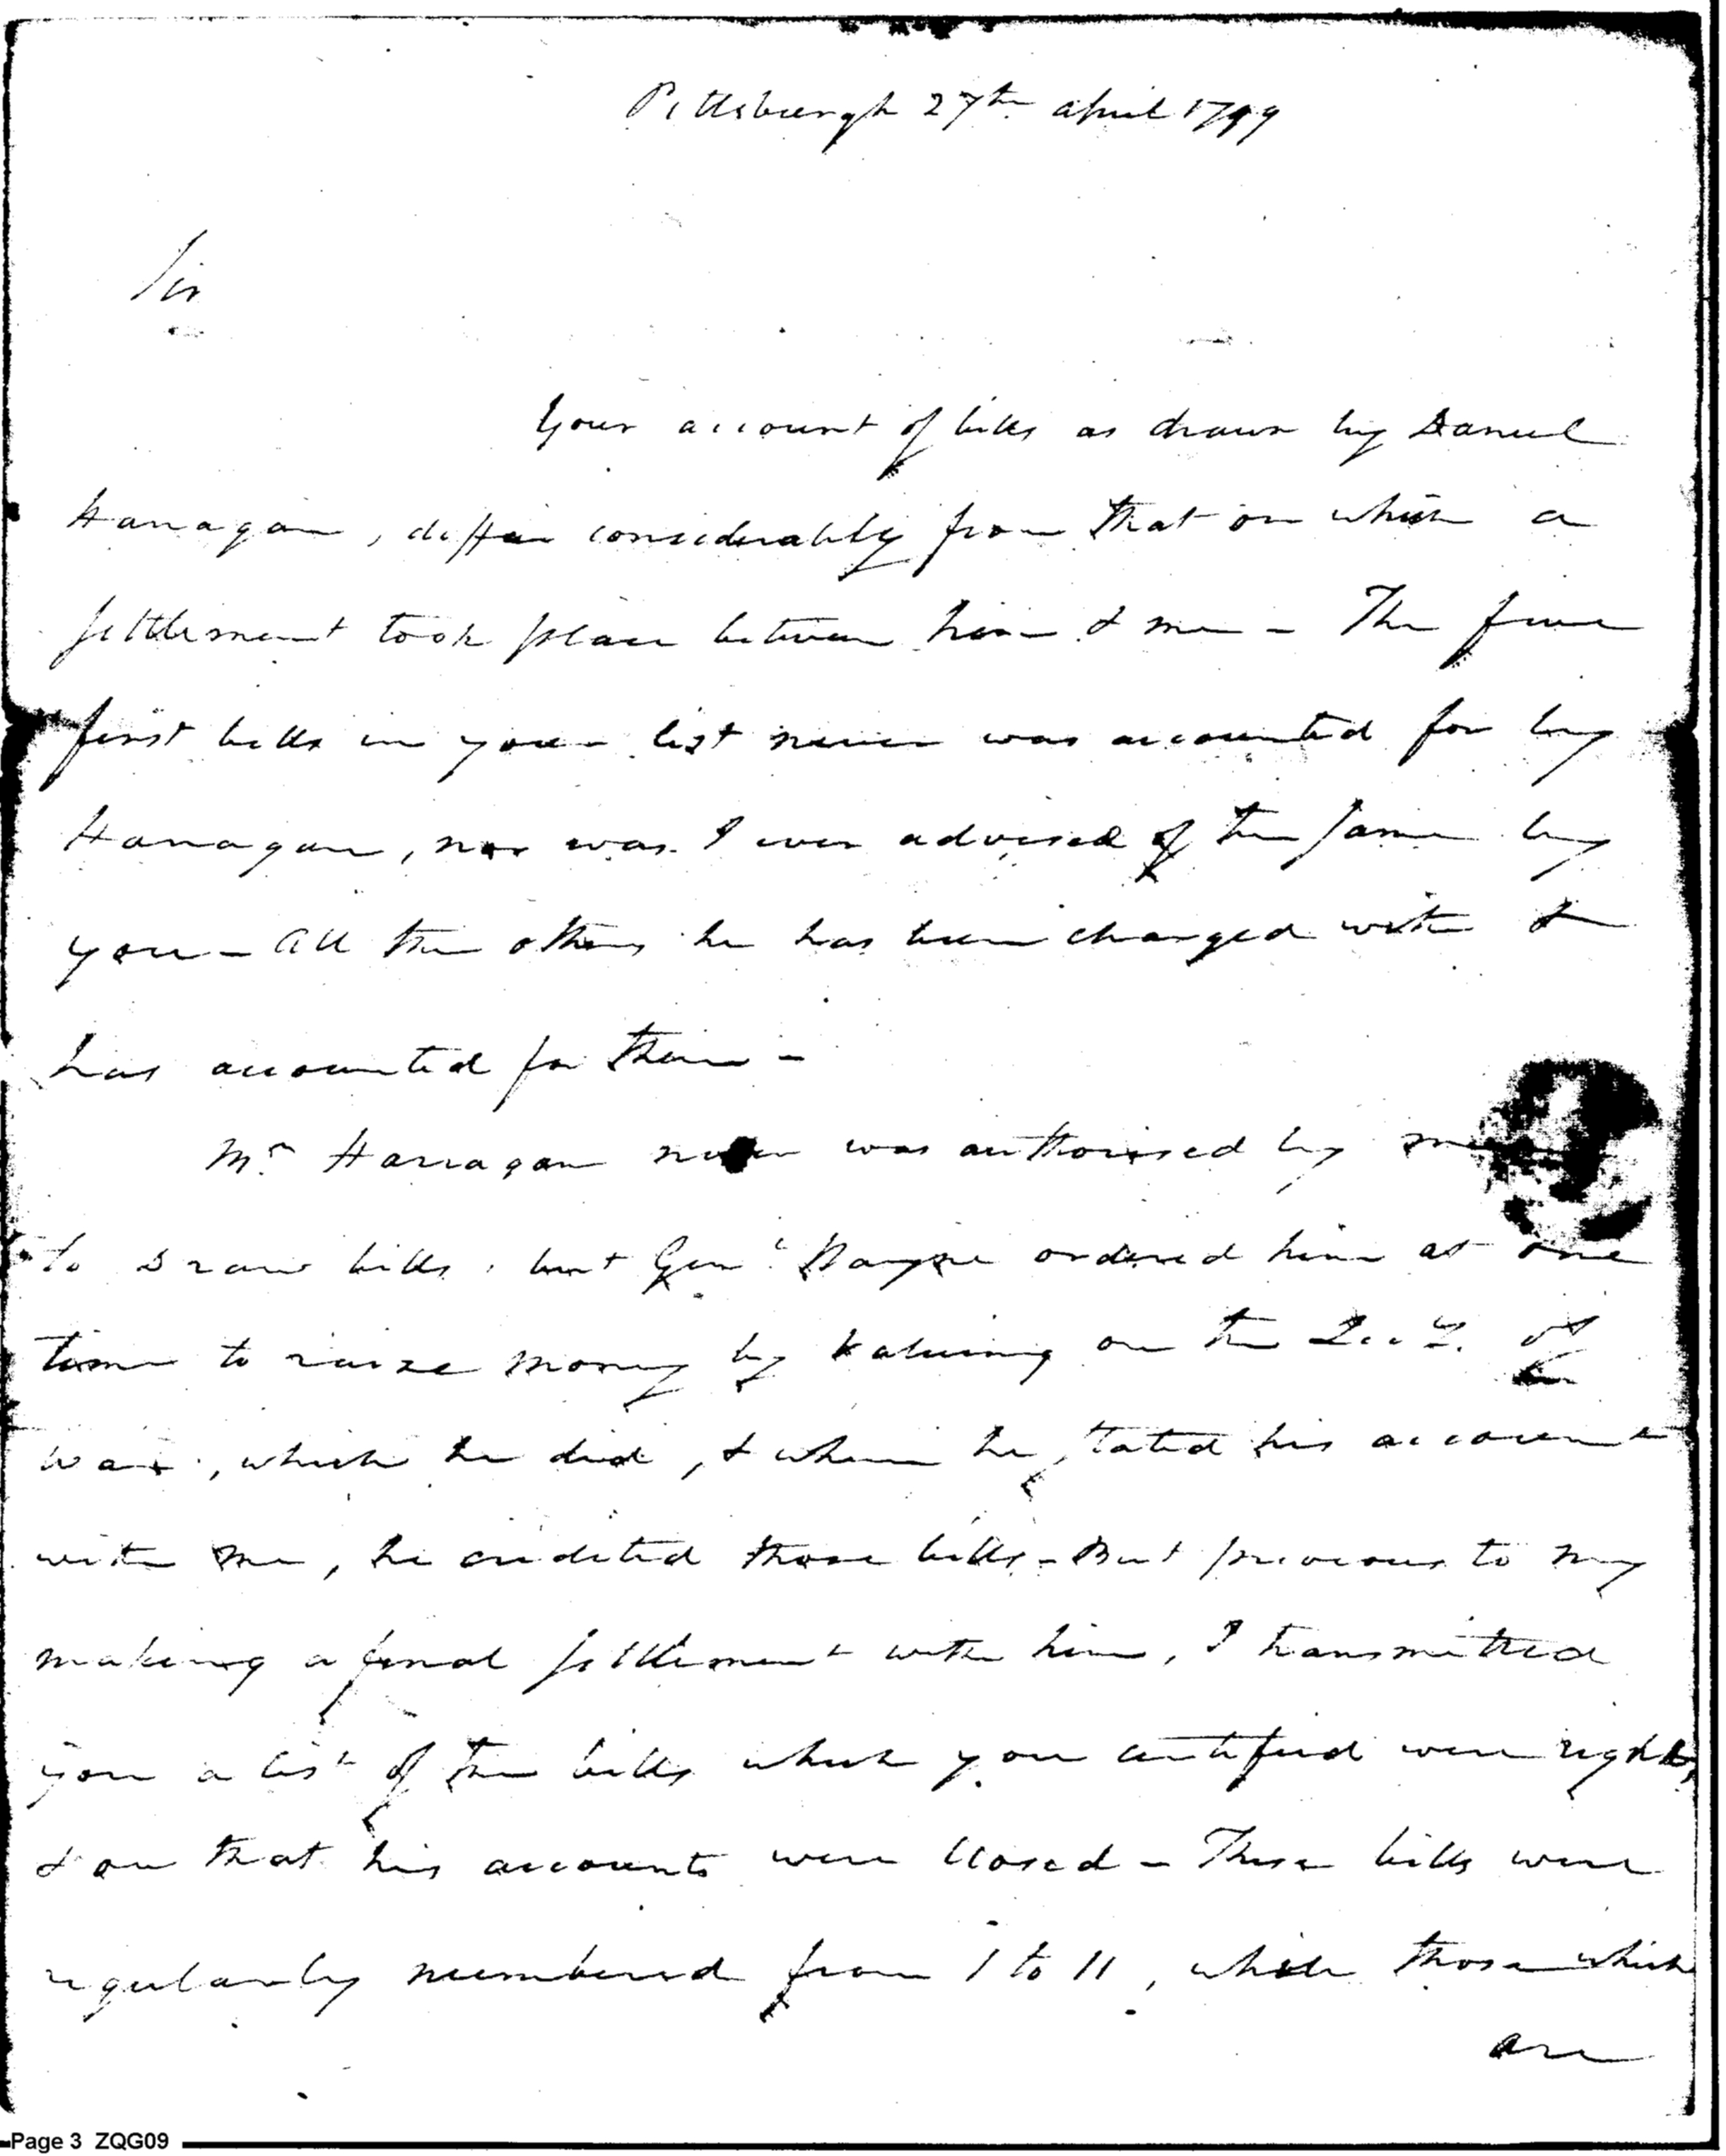 Pittsburgh 27th april 1799
Sir
Your account of bills as drawn by Daniel
Hanagan, differ considerably from that on which a
settlement took place between him & me - The five
first bills in your list never was accounted for by
Hanagan, nor was I ever advised of the same by
you - All the others he has been charged with &
has accounted for them -
Mr Hanagan never was authorised by me
to draw bills, but Genl Wayne ordered him at one
time to raise money by valuing on the Secy. of
war, which he did, & when he stated his account
with me, he credited those bills - But previous to my
making a final settlement with him, I transmitted
you a list of the bills which you certified were right,
& on that his accounts were closed - These bills were
regularly numbered from 1 to 11, while those which
are
Page 3 ZQG09